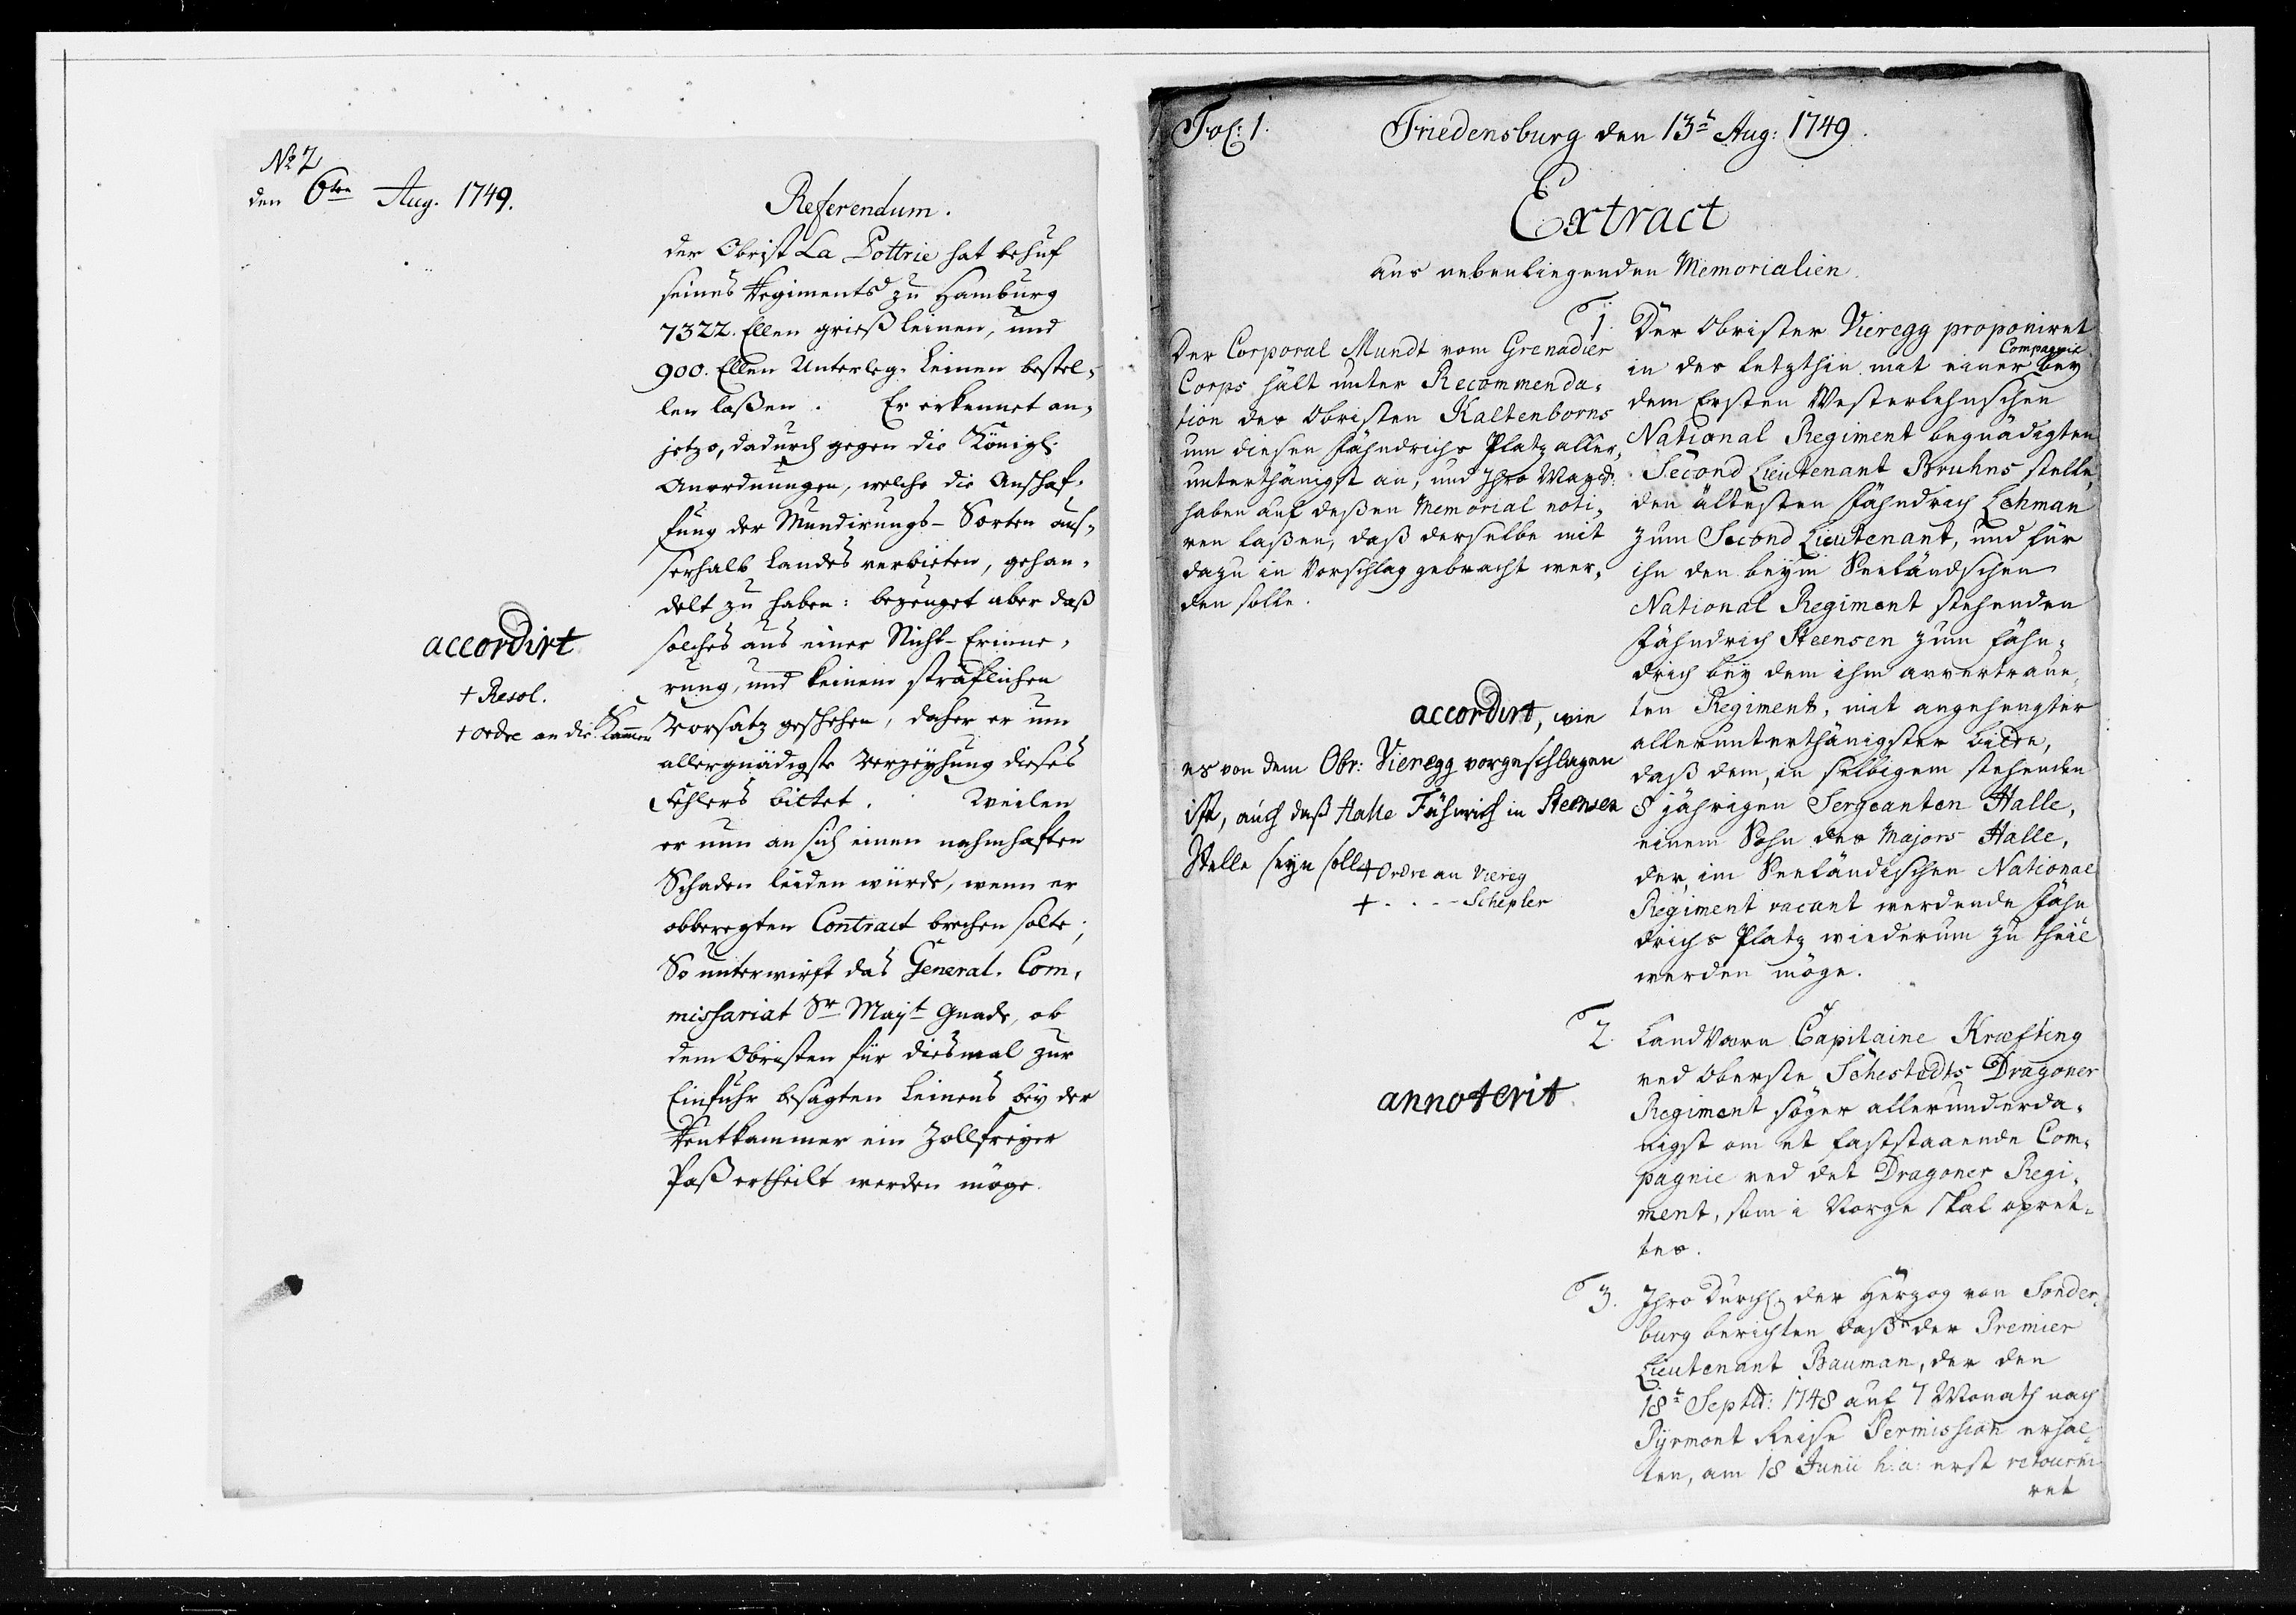 No 7
den 6ten Aug. 1749.
Referendum.
der Obrist La Pottrie hat behuf
seines Regiments zu Hamburg
7322. Ellen grieß leinen, und
900. Ellen Unterleg-Leinen bestel-
len laßen. Er erkennet an-
jetzo, dadurch gegen die Königl.
Anordnungen, welche die Anschaf-
fung der Mundirungs-Sorten aus-
serhalb Landes verbieten, gehan-
delt zu haben: bezeuget aber daß
solches aus einer Nicht-Erinne-
rung, und keinem sträflichen
Vorsatz geschehen, daher er um
allergnädigste Verzeyhung dieses
Fehlers bittet. Weilen
er nun an sich einen nahmhaften
Schaden leiden würde, wenn er
obberegten Contract brechen solte;
So unterwirft das General-Com-
missariat Sr Mayt Gnade, ob
dem Obristen für diesmal zur
Einfuhr besagten Leinens bey der
Rentkammer ein Zollfreyer
Paß ertheilt werden möge.
accordirt
+ Resol.
+ ordre an die Kammer
Fol: 1.
Friedensburg den 13t Aug: 1749.
Extract
aus nebenliegenden Memorialien.
1. Der Obrister Vieregg proponiret
in des letzthin mit einer Compagnie bey
dem Ersten Westerlehnschen
National Regiment begnädigten
Second Lieutenant Bruhns stelle,
den ältesten Fähndrich Lehman
zum Second Lieutenant, und für
ihn den beym Seeländschen
National Regiment stehenden
Fähndrich Steensen zum Fähn-
drich bey dem ihm anvertraue-
ten Regiment, mit angehengter
allerunterthänigster bitte,
daß dem, in selbigem stehenden
8 jährigen Sergeanten Halle,
einem Sohn des Majors Halle,
der, im Seeländischen National
Regiment vacant werdende Fähn
drichs Platz wiederum zu theil
werden möge.
Der Corporal Mundt vom Grenadier
Corps hält unter Recommenda-
tion des Obristen Kaltenborns
um diesen Fähndrichs Platz aller-
unterthänigst an, und Ihro Mayt.
haben auf deßen Memorial noti-
ren laßen, daß derselbe mit
dazu in Vorschlag gebracht wer-
den solle.
accordirt, wie
es von dem Obr: Vieregg vorgeschlagen
ist, auch daß Halle Fähnrich in Steensen
Stelle seyn solle
+ Ordre an Viereg
+ . . - - Schepler
2. Landværn Capitaine Kræfting
ved Oberste Sehestedts Dragoner
Regiment søger allerunderda-
nigst om et faststaaende Com-
pagnie ved det Dragoner Regi-
ment, som i Norge skal opret-
tes.
annoterit.
3. Ihro Durchl. der Hertzog von Sonder-
burg berichten daß der Premier
Lieutenant Bauman, der den
18t Septbr: 1748 auf 7 Monath nach
Pyrmont Reise Permission erhal-
ten, am 18 Junii h: a: erst retourni-
ret